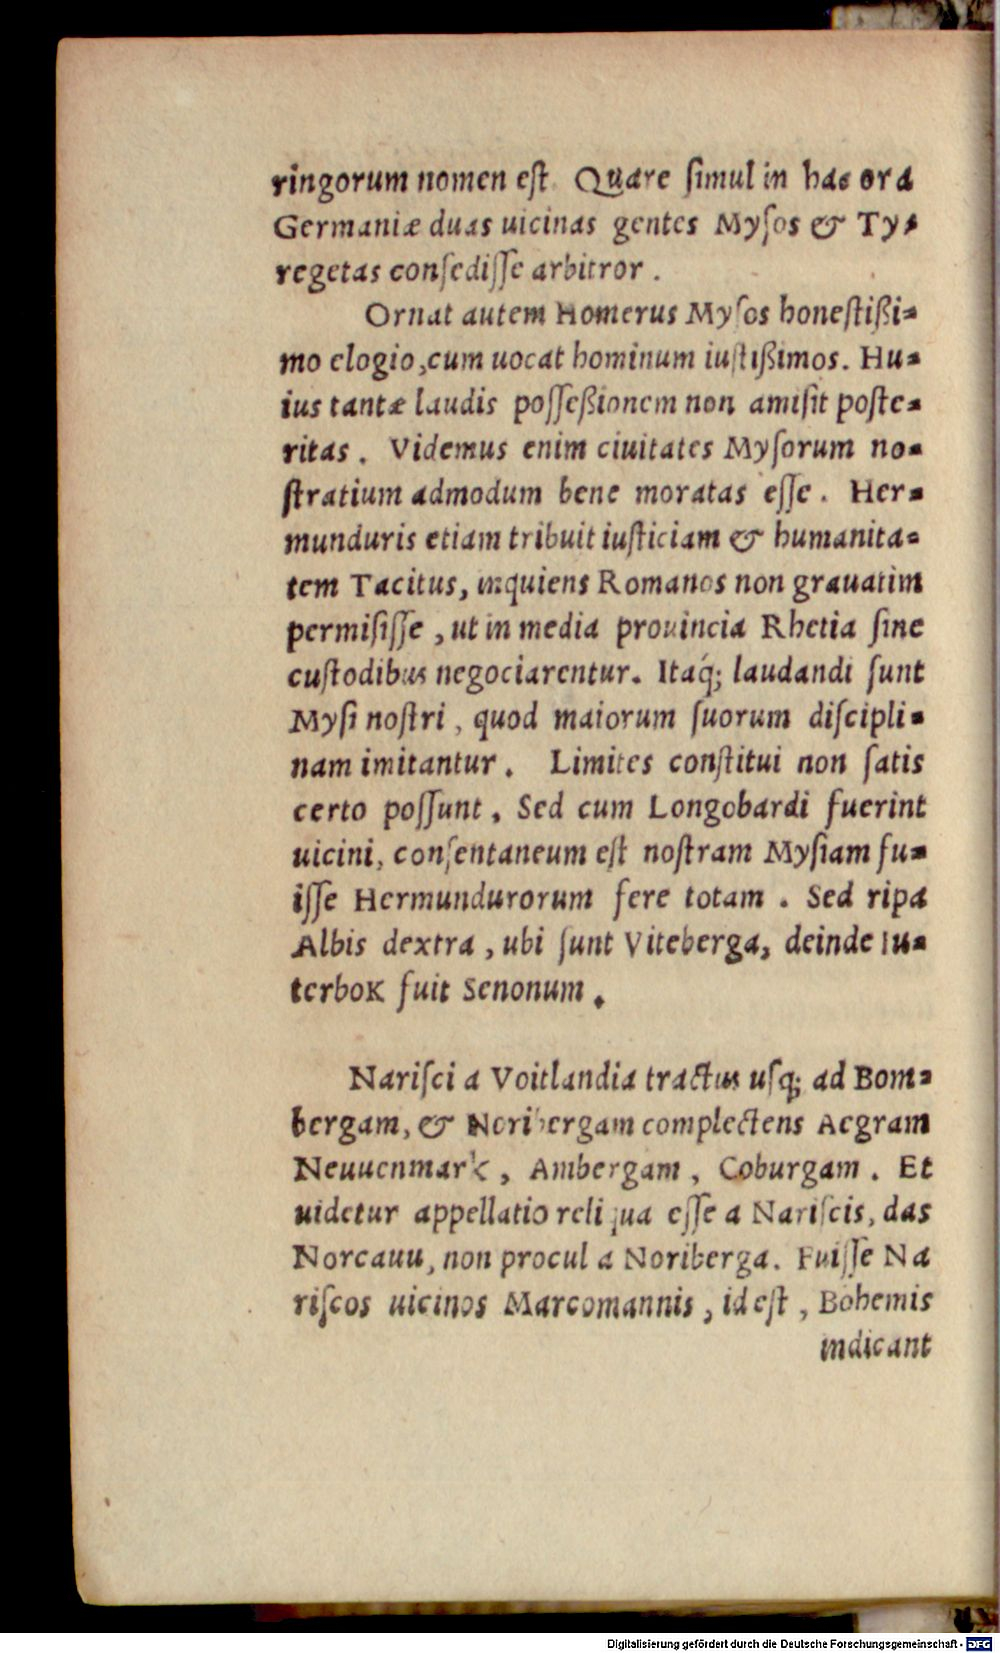 ringorum nomen eſt Quare ſimul in hac ora
Germaniæ duas uicinas gentes Myſos & Ty-
regetas conſediſſe arbitror .
Ornat autem Homerus Myſos honeſtißi-
mo elogio, cum uocat hominum iuſtißimos. Hu-
ius tantæ laudis poſſeßionem non amiſit poſte-
ritas . Videmus enim ciuitates Myſorum no-
ſtratium admodum bene moratas eſſe . Her-
munduris etiam tribuit iuſticiam & humanita-
tem Tacitus, inquiens Romanos non grauatim
permiſiſſe , ut in media prouincia Rhetia ſine
cuſtodibus negociarentur. Itaq́; laudandi ſunt
Myſi noſtri , quod maiorum ſuorum diſcipli-
nam imitantur . Limites conſtitui non ſatis
certo poſſunt . Sed cum Longobardi fuerint
uicini, conſentaneum eſt noſtram Myſiam fu-
iſſe Hermundurorum fere totam . Sed ripa
Albis dextra , ubi ſunt Viteberga, deinde Iu-
terboK fuit Senonum .
Nariſci a Voitlandia tractus uſq; ad Bom-
bergam, & Noribergam complectens Aegram
Neuuenmark , Ambergam , Coburgam . Et
uidetur appellatio reliqua eſſe a Nariſcis, das
Norcauu, non procul a Noriberga. Fuiſſe Na
riſcos uicinos Marcomannis , id eſt , Bohemis
indicant
Digitalisierung gefördert durch die Deutsche Forschungsgemeinschaft - DFG